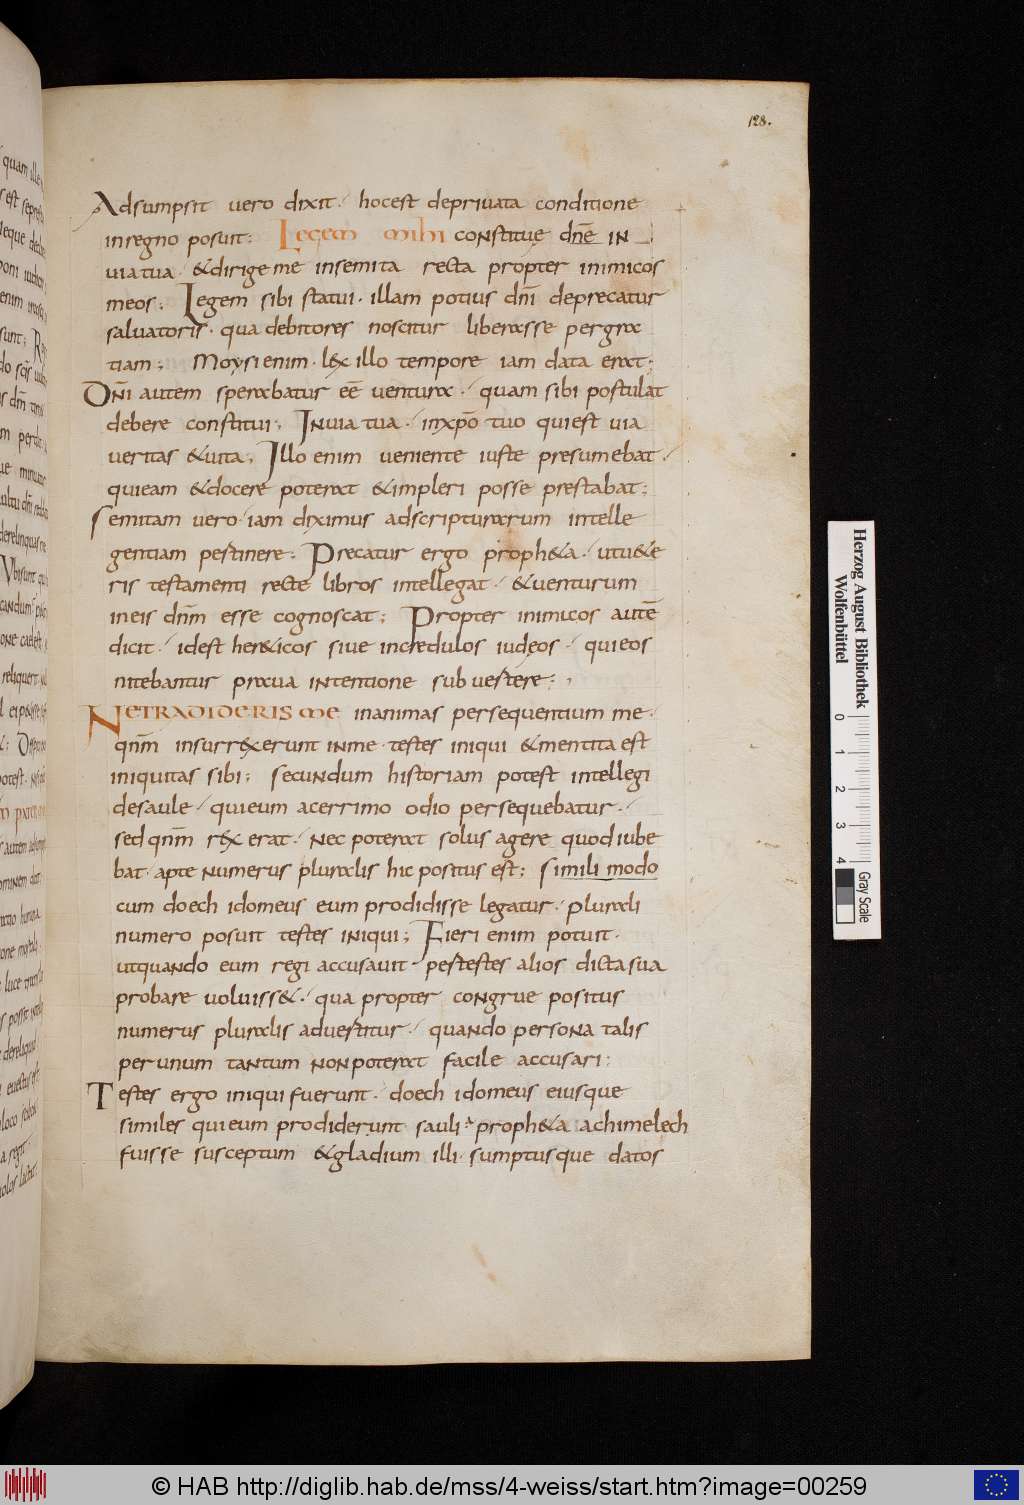 128.
Adsumpsit vero dixit· hocest deprivata conditione
inregno posuit: Legem mihi constitue dn̄e in
viatua· &dirigeme insemita recta propter inimicos
meos; Legem sibi statui· illam potius dn̄i deprecatur
salvatoris· qua debitores noscitur liberasse pergra
tiam; Moysi enim· lex illo tempore iam data erat·
Dn̄i autem sperabatur eē ventura· quam sibi postulat
debere constitui; Invia tua· inxp̄o tuo quiest via
veritas &vita; Illo enim veniente iuste presumebat·
quieam &docere poterat &impleri posse prestabat;
Semitam vero· iam diximus adscripturarum intelle
gentiam pertinere· Precatur ergo proph&a· utu&e
ris testamenti recte libros intellegat· &venturum
ineis dn̄m esse cognoscat; Propter inimicos autē
dicit· idest her&icos sive incredulos iudęos· quieos
nitebantur prava intentione subvertere;
Netradideris me inanimas persequentium me·
qn̄m insurrexerunt inme· testes iniqui &mentita est
iniquitas sibi; secundum historiam potest intellegi
desaule· quieum acerrimo odio persequebatur·
sed qn̄m rex erat· nec poterat solus agere quodiube
bat· apte numerus pluralis hic positus est; simili modo
cum doech idomeus eum prodidisse legatur· plurali
numero posuit testes iniqui; Fieri enim potuit·
utquando eum regi accusavit· pertestes alios dicta sua
probare voluiss&· qua propter congrue positus
numerus pluralis advertitur· quando persona talis
perunum tantum nonpoterat facile accusari;
Testes ergo iniqui fuerunt· doech idomeus eiusque
similes quieum prodiderunt sauli· a proph&a achimelech
fuisse susceptum &gladium illi sumptusque datos
Herzog August Bibliothek
Wolfenbüttel
0 1 2 3 4
Gray Scale
© HAB http://diglib.hab.de/mss/4-weiss/start.htm?image=00259